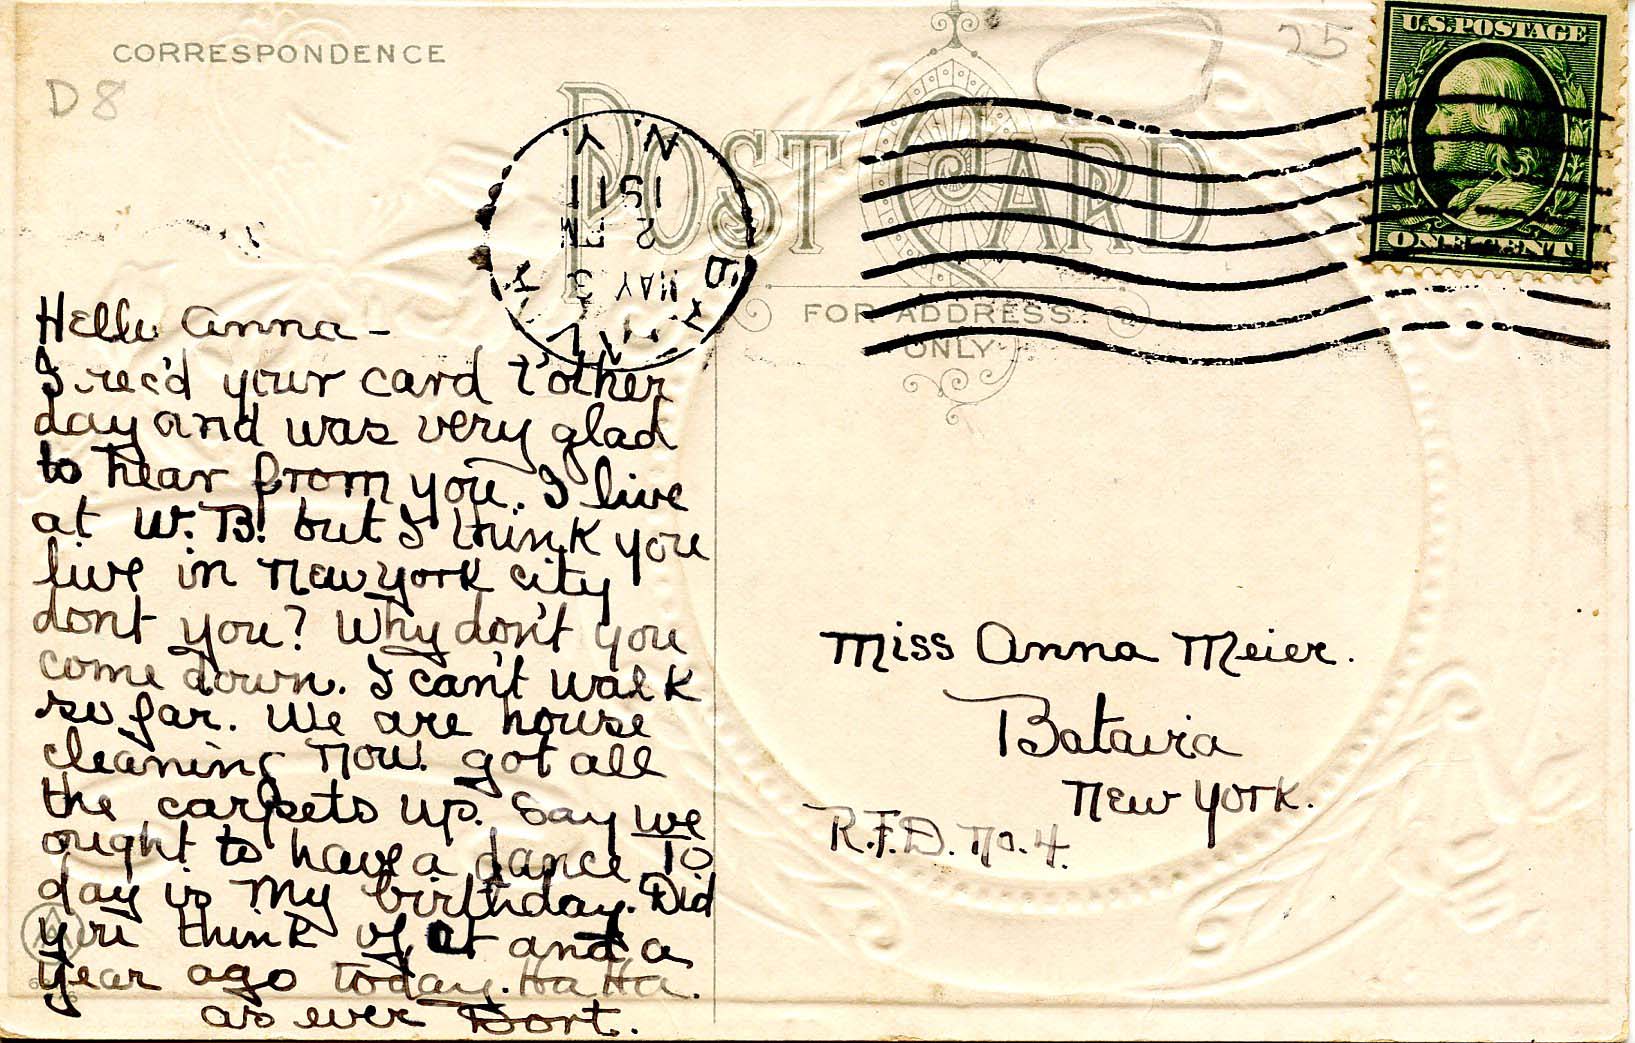 CORRESPONDENCE
D 8
25
POST CARD
FOR ADDRESS
ONLY
U.S. POSTAGE
ONE CENT
N.Y.
1911
2 PM
MAY 3
Hello Anna -
I rec'd your card t'other
day and was very glad
to hear from you. I live
at W. B. but I think you
live in New York city
dont you? Why don't you
come down. I can't walk
so far. We are house
cleaning now. got all
the carpets up. Say we
ought to have a dance To
day is my birthday. Did
you think of it and a
year ago today. Ha Ha.
as ever Dort.
Miss Anna Meier.
Batavia
New York.
R.F.D. No. 4.